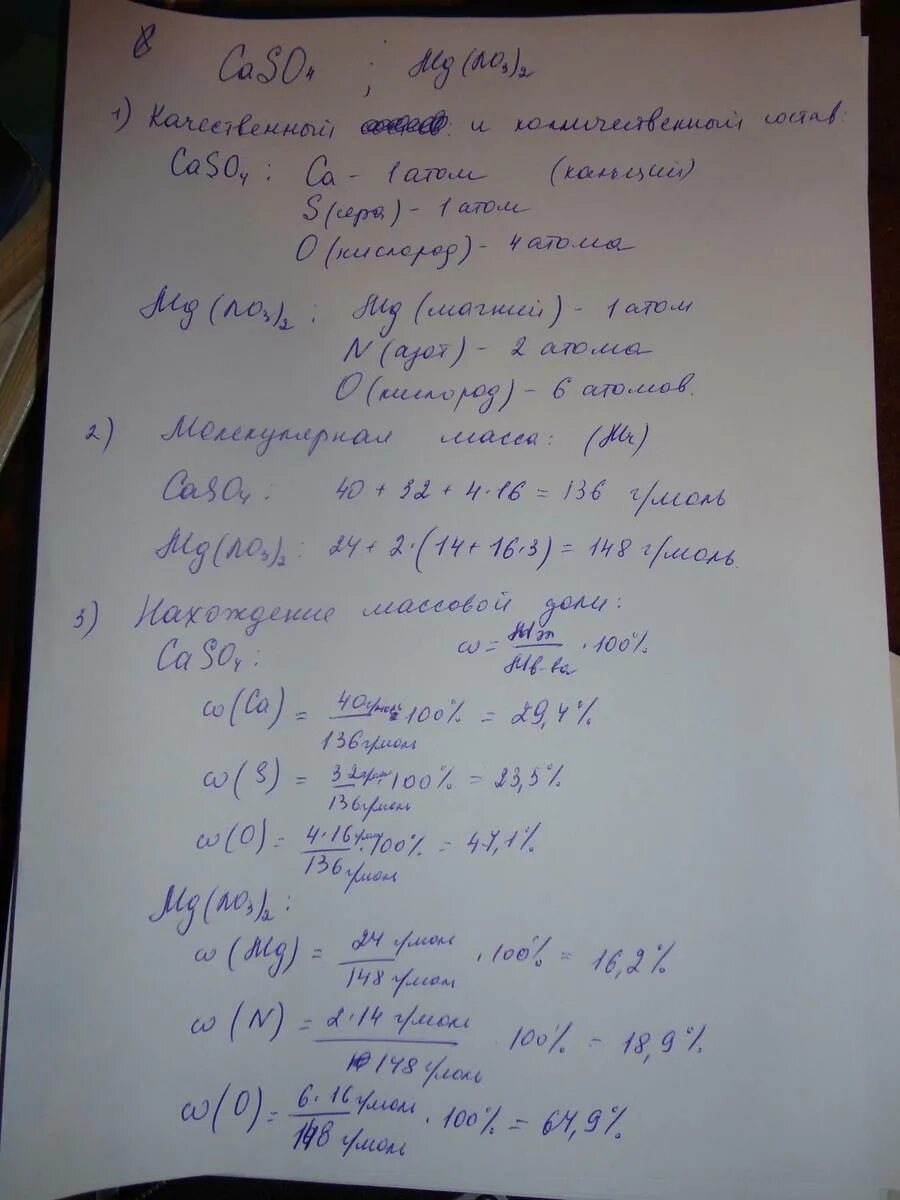 CaSO₄ ; Mg(NO₃)₂
1) Качественный и количественный состав:
CaSO₄ : Ca - 1 атом (кальций)
S (сера) - 1 атом
O (кислород) - 4 атома
Mg(NO₃)₂ : Mg (магний) - 1 атом
N (азот) - 2 атома
O (кислород) - 6 атомов.
2) Молекулярная масса: (Mr)
CaSO₄ : 40 + 32 + 4·16 = 136 г/моль
Mg(NO₃)₂ : 24 + 2·(14 + 16·3) = 148 г/моль.
3) Нахождение массовой доли:
CaSO₄ : ω = Mэл / Mв-ва · 100%
ω(Ca) = 40 г/моль / 136 г/моль · 100% = 29,4%
ω(S) = 32 г/моль / 136 г/моль · 100% = 23,5%
ω(O) = 4·16 г/моль / 136 г/моль · 100% = 47,1%
Mg(NO₃)₂ :
ω(Mg) = 24 г/моль / 148 г/моль · 100% = 16,2%
ω(N) = 2·14 г/моль / 148 г/моль 100% = 18,9%
ω(O) = 6·16 г/моль / 148 г/моль · 100% = 64,9%